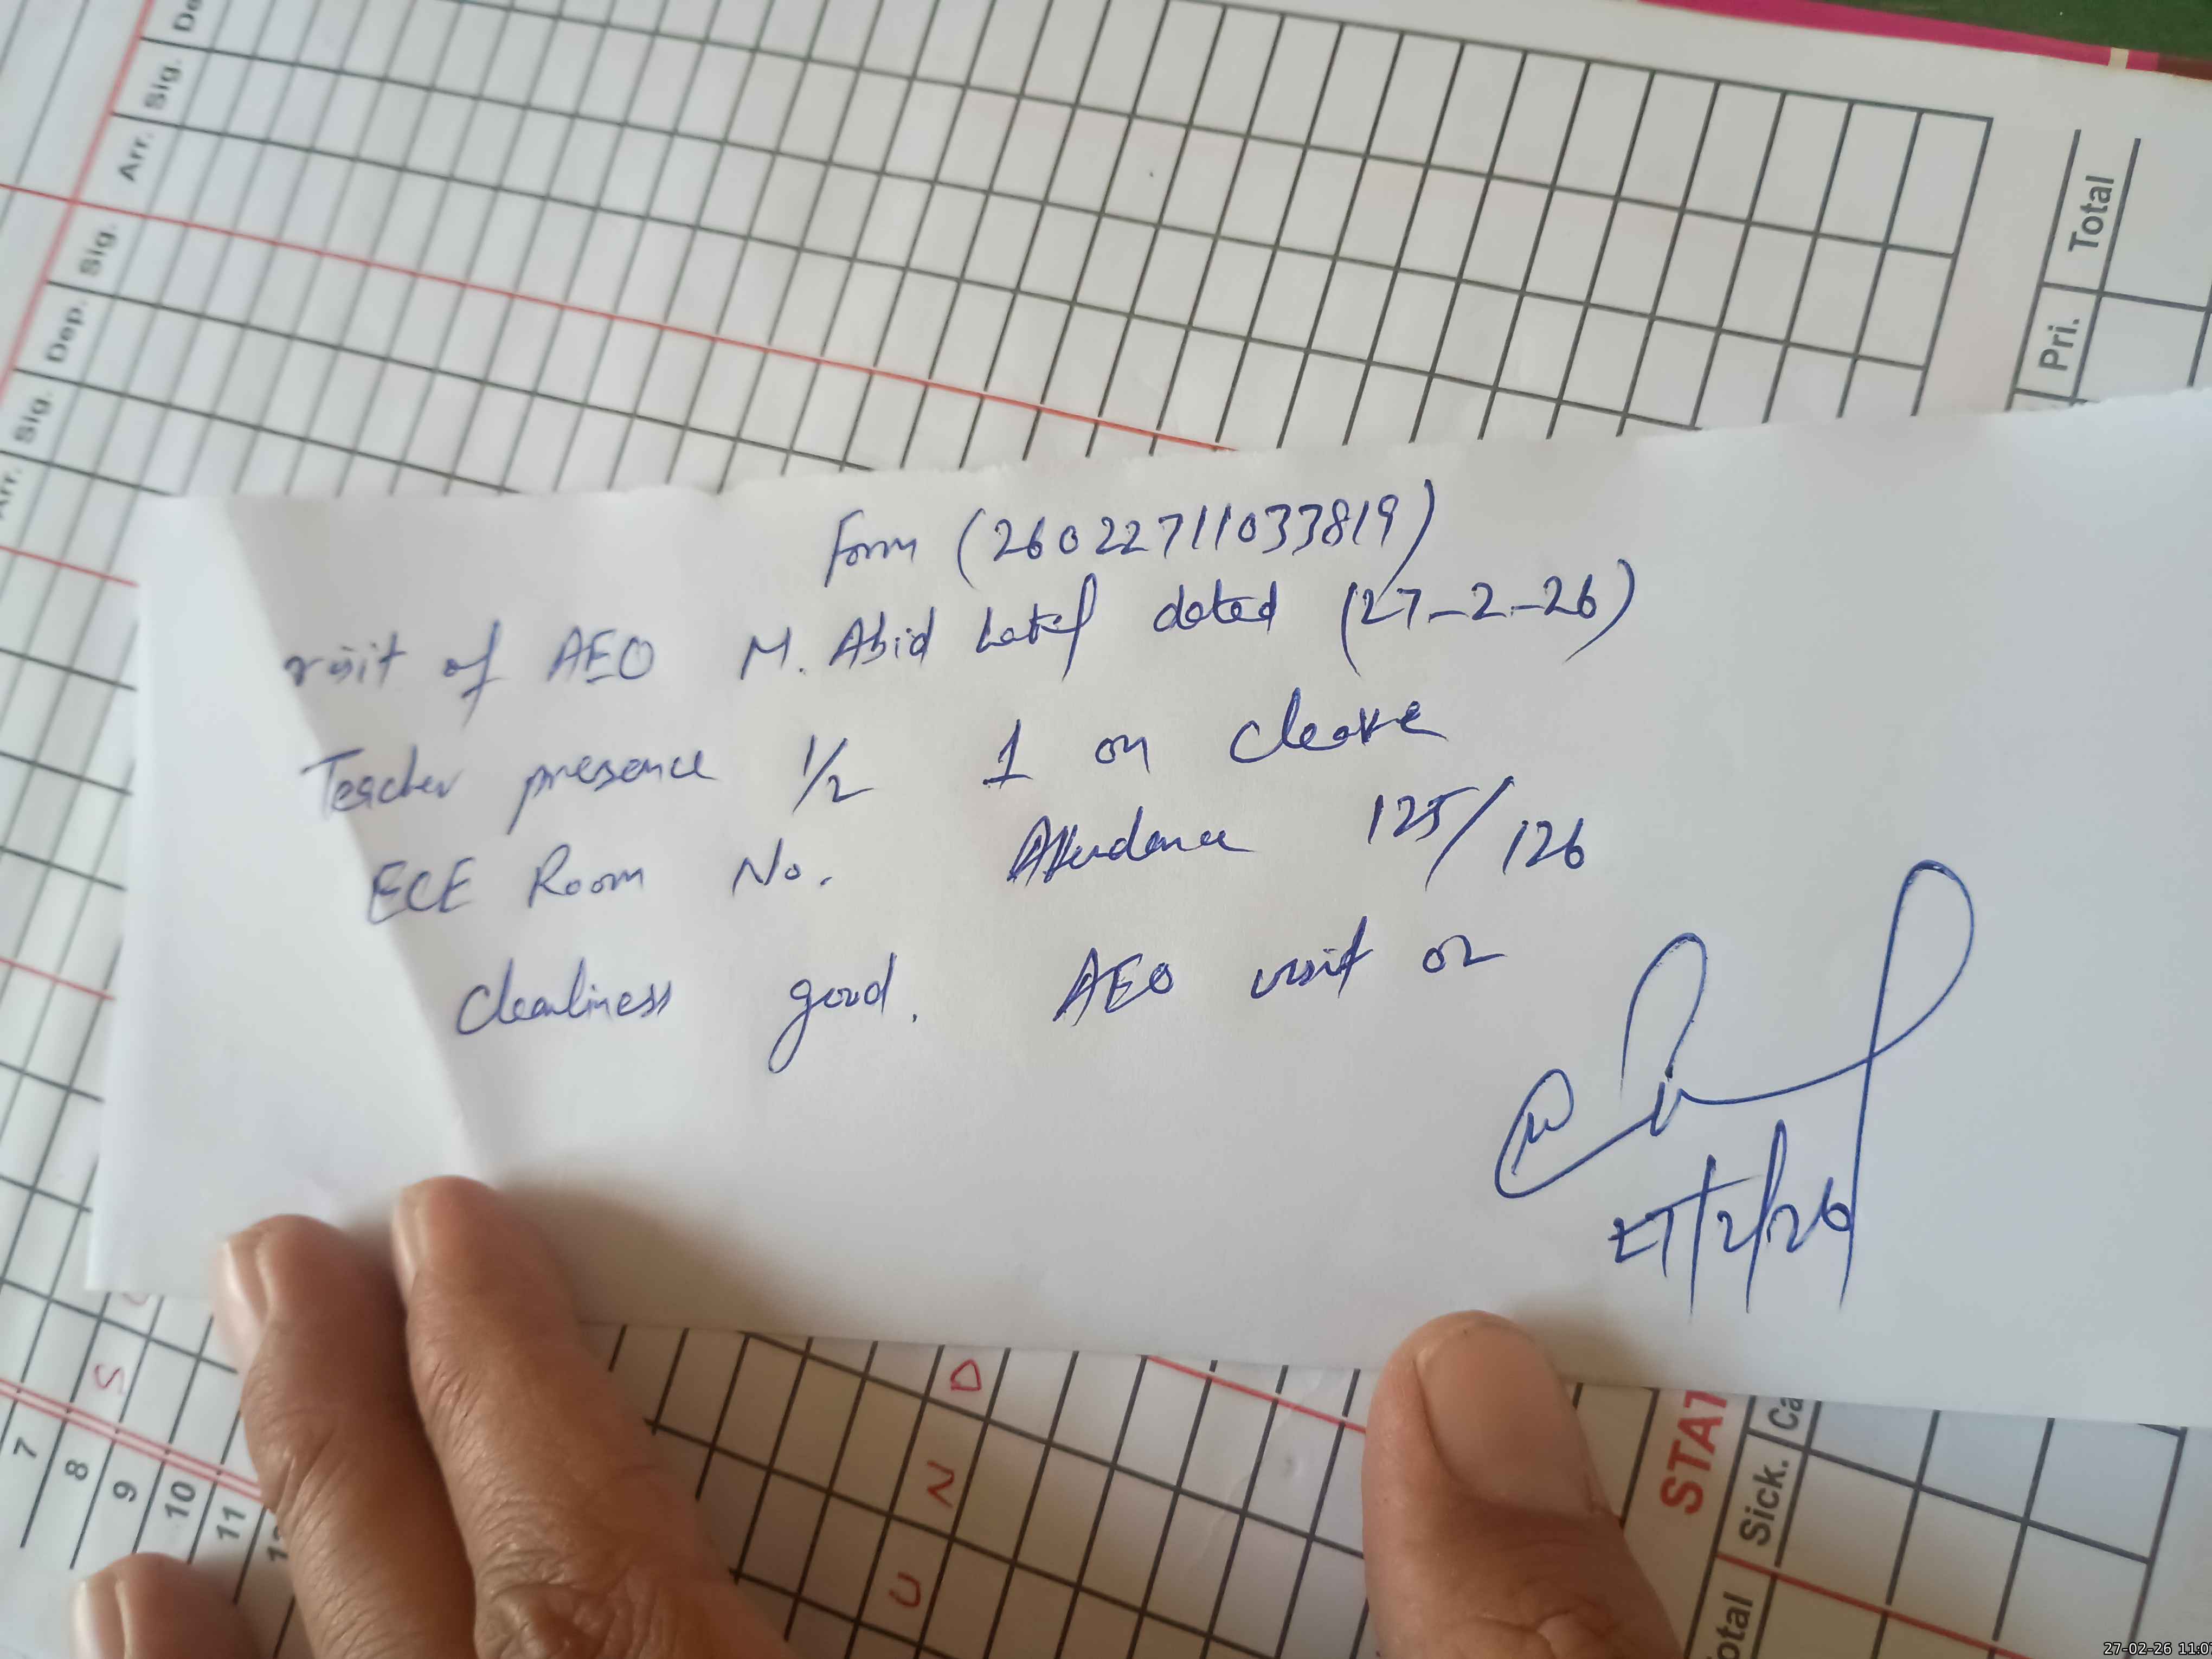 De
Sig.
Arr.
Sig.
Dep.
Sig.
Arr.
Total
Pri.
Form (26022711033819)
visit of AEO M. Abid Latif dated (27-2-26)
Teacher presence 1/2 1 on cleave
ECE Room No. Attendance 125/126
Cleanliness good. AEO visit 02
27/2/26
S
D
N
U
7
8
9
10
11
STAT
Sick.
Ca
otal
27-02-26 11:0